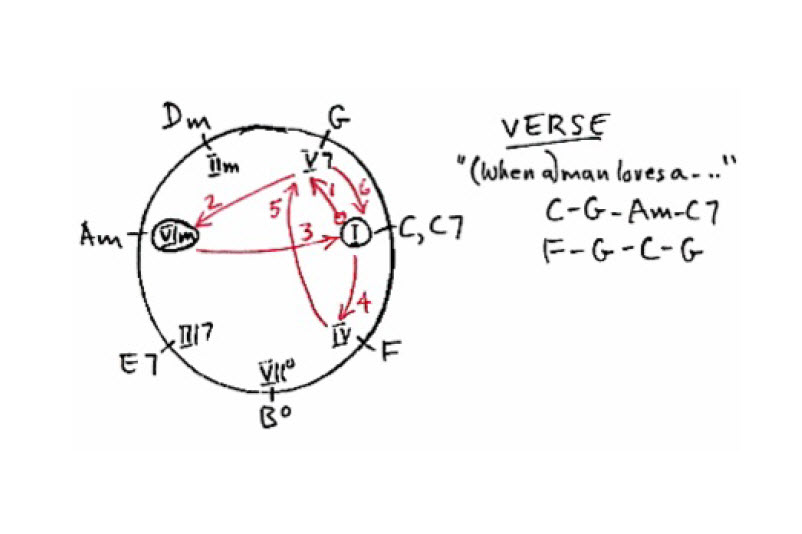 Dm
G
VERSE
IIm
V7
"(When a) man loves a - .."
2
5
1
6
C-G-Am-C7
Am
VIm
3
I
C, C7
F-G-C-G
4
III7
IV
E7
F
VII°
B°